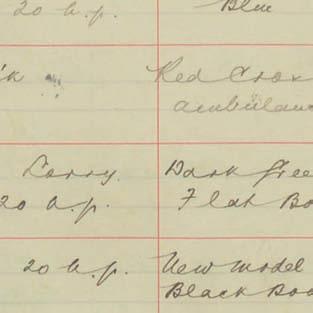 20 h.p. Blue
Red Cross
ambulan
Lorry. Dark Gree
20 h.p. Flat Bo
20 h.p. New Model
Black Bod